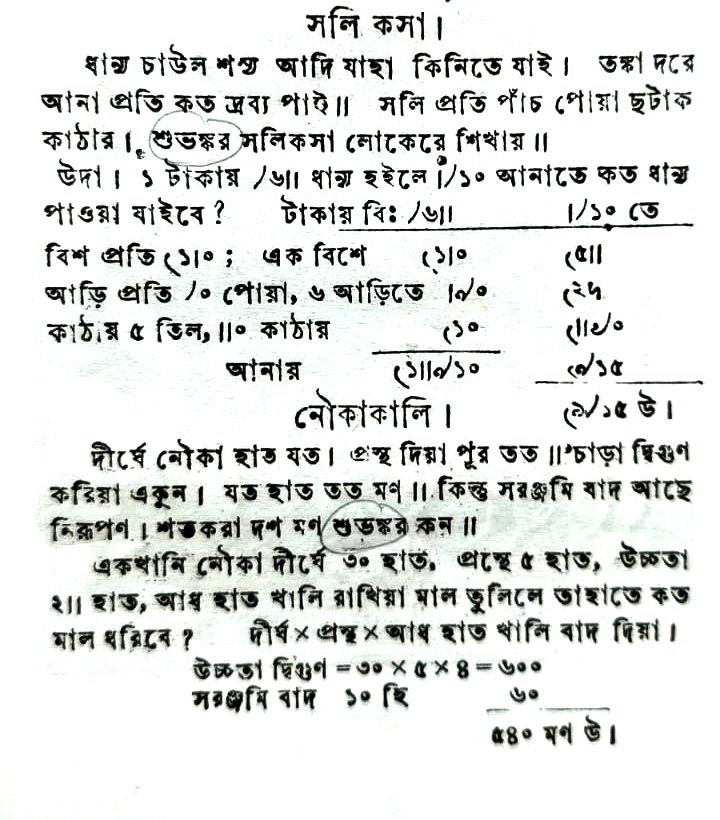 সলি কসা।
ধান্য চাউল শস্য আদি যাহা কিনিতে যাই। তঙ্কা দরে
আনা প্রতি কত দ্রব্য পাই॥ সলি প্রতি পাঁচ পোয়া ছটাক
কাঠার। শুভঙ্কর সলিকসা লোকেরে শিখায়॥
উদা। ১ টাকায় /৬॥ ধান্য হইলে ।/১০ আনাতে কত ধান্য
পাওয়া যাইবে? টাকায় বিঃ /৬॥ ।/১০ তে
বিশ প্রতি (১।০; এক বিশে (১।০ (৫॥
আড়ি প্রতি /০ পোয়া, ৬ আড়িতে ।৵০
কাঠায় ৫ তিল, ॥০ কাঠায় (১০
আনায়
নৌকাকালি। উ।
দীর্ঘে নৌকা হাত যত। প্রস্থ দিয়া পূর তত॥ চাড়া দ্বিগুণ
করিয়া একুন। যত হাত তত মণ॥ কিন্তু সরঞ্জমি বাদ আছে
নিরূপণ। শতকরা দশ মণ শুভঙ্কর কন॥
একখানি নৌকা দীর্ঘে ৩০ হাত, প্রস্থে ৫ হাত, উচ্চতা
২॥ হাত, আধ হাত খালি রাখিয়া মাল তুলিলে তাহাতে কত
মাল ধরিবে? দীর্ঘ × প্রস্থ × আধ হাত খালি বাদ দিয়া।
উচ্চতা দ্বিগুণ = ৩০ × ৫ × ৪ = ৬০০
সরঞ্জমি বাদ ১০ হি ৬০
৫৪০ মণ উ।